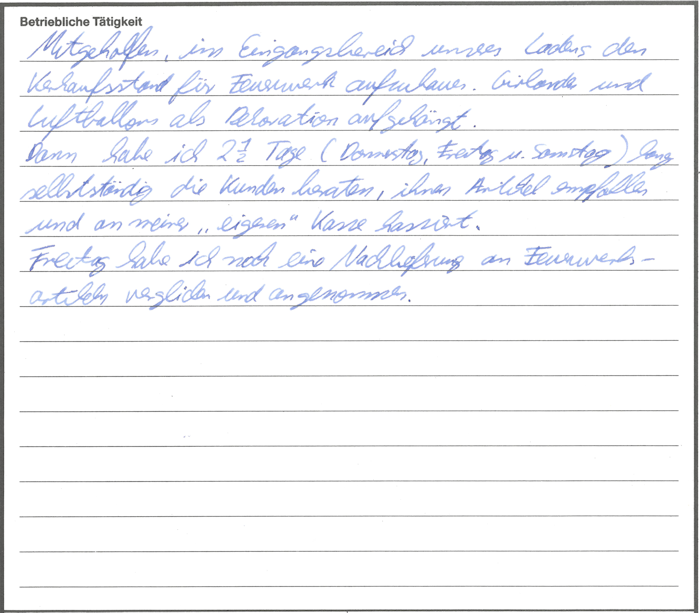 Betriebliche Tätigkeit
Mitgeholfen, im Eingangsbereich unseres Ladens den
Verkaufsstand für Feuerwerk aufzubauen. Girlanden und
Luftballons als Dekoration aufgehängt.
Dann habe ich 2 1/2 Tage (Donnerstag, Freitag u. Samstag) lang
selbstständig die Kunden beraten, ihnen Artikel empfohlen
und an meiner „eigenen“ Kasse kassiert.
Freitag habe ich noch eine Nachlieferung an Feuerwerks-
artikeln verglichen und angenommen.